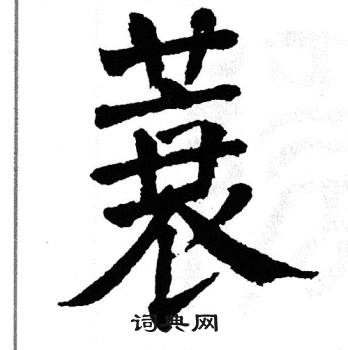 蓑
词典网